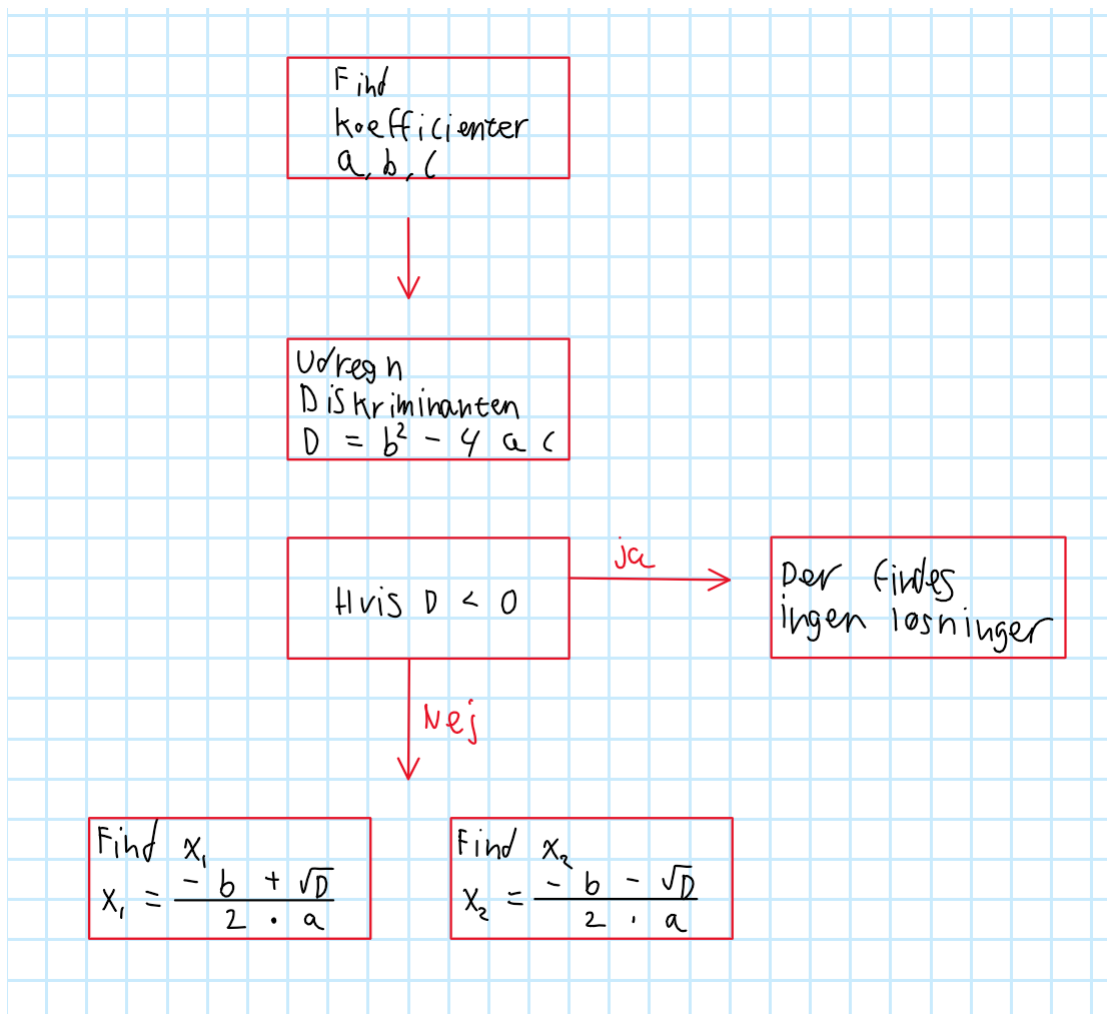 Find
koefficienter
a, b, c
Udregn
Diskriminanten
D = b² - 4 a c
Hvis D < 0
ja
Der findes
ingen løsninger
Nej
Find x₁
x₁ = (-b + √D) / (2 · a)
Find x₂
x₂ = (-b - √D) / (2 · a)